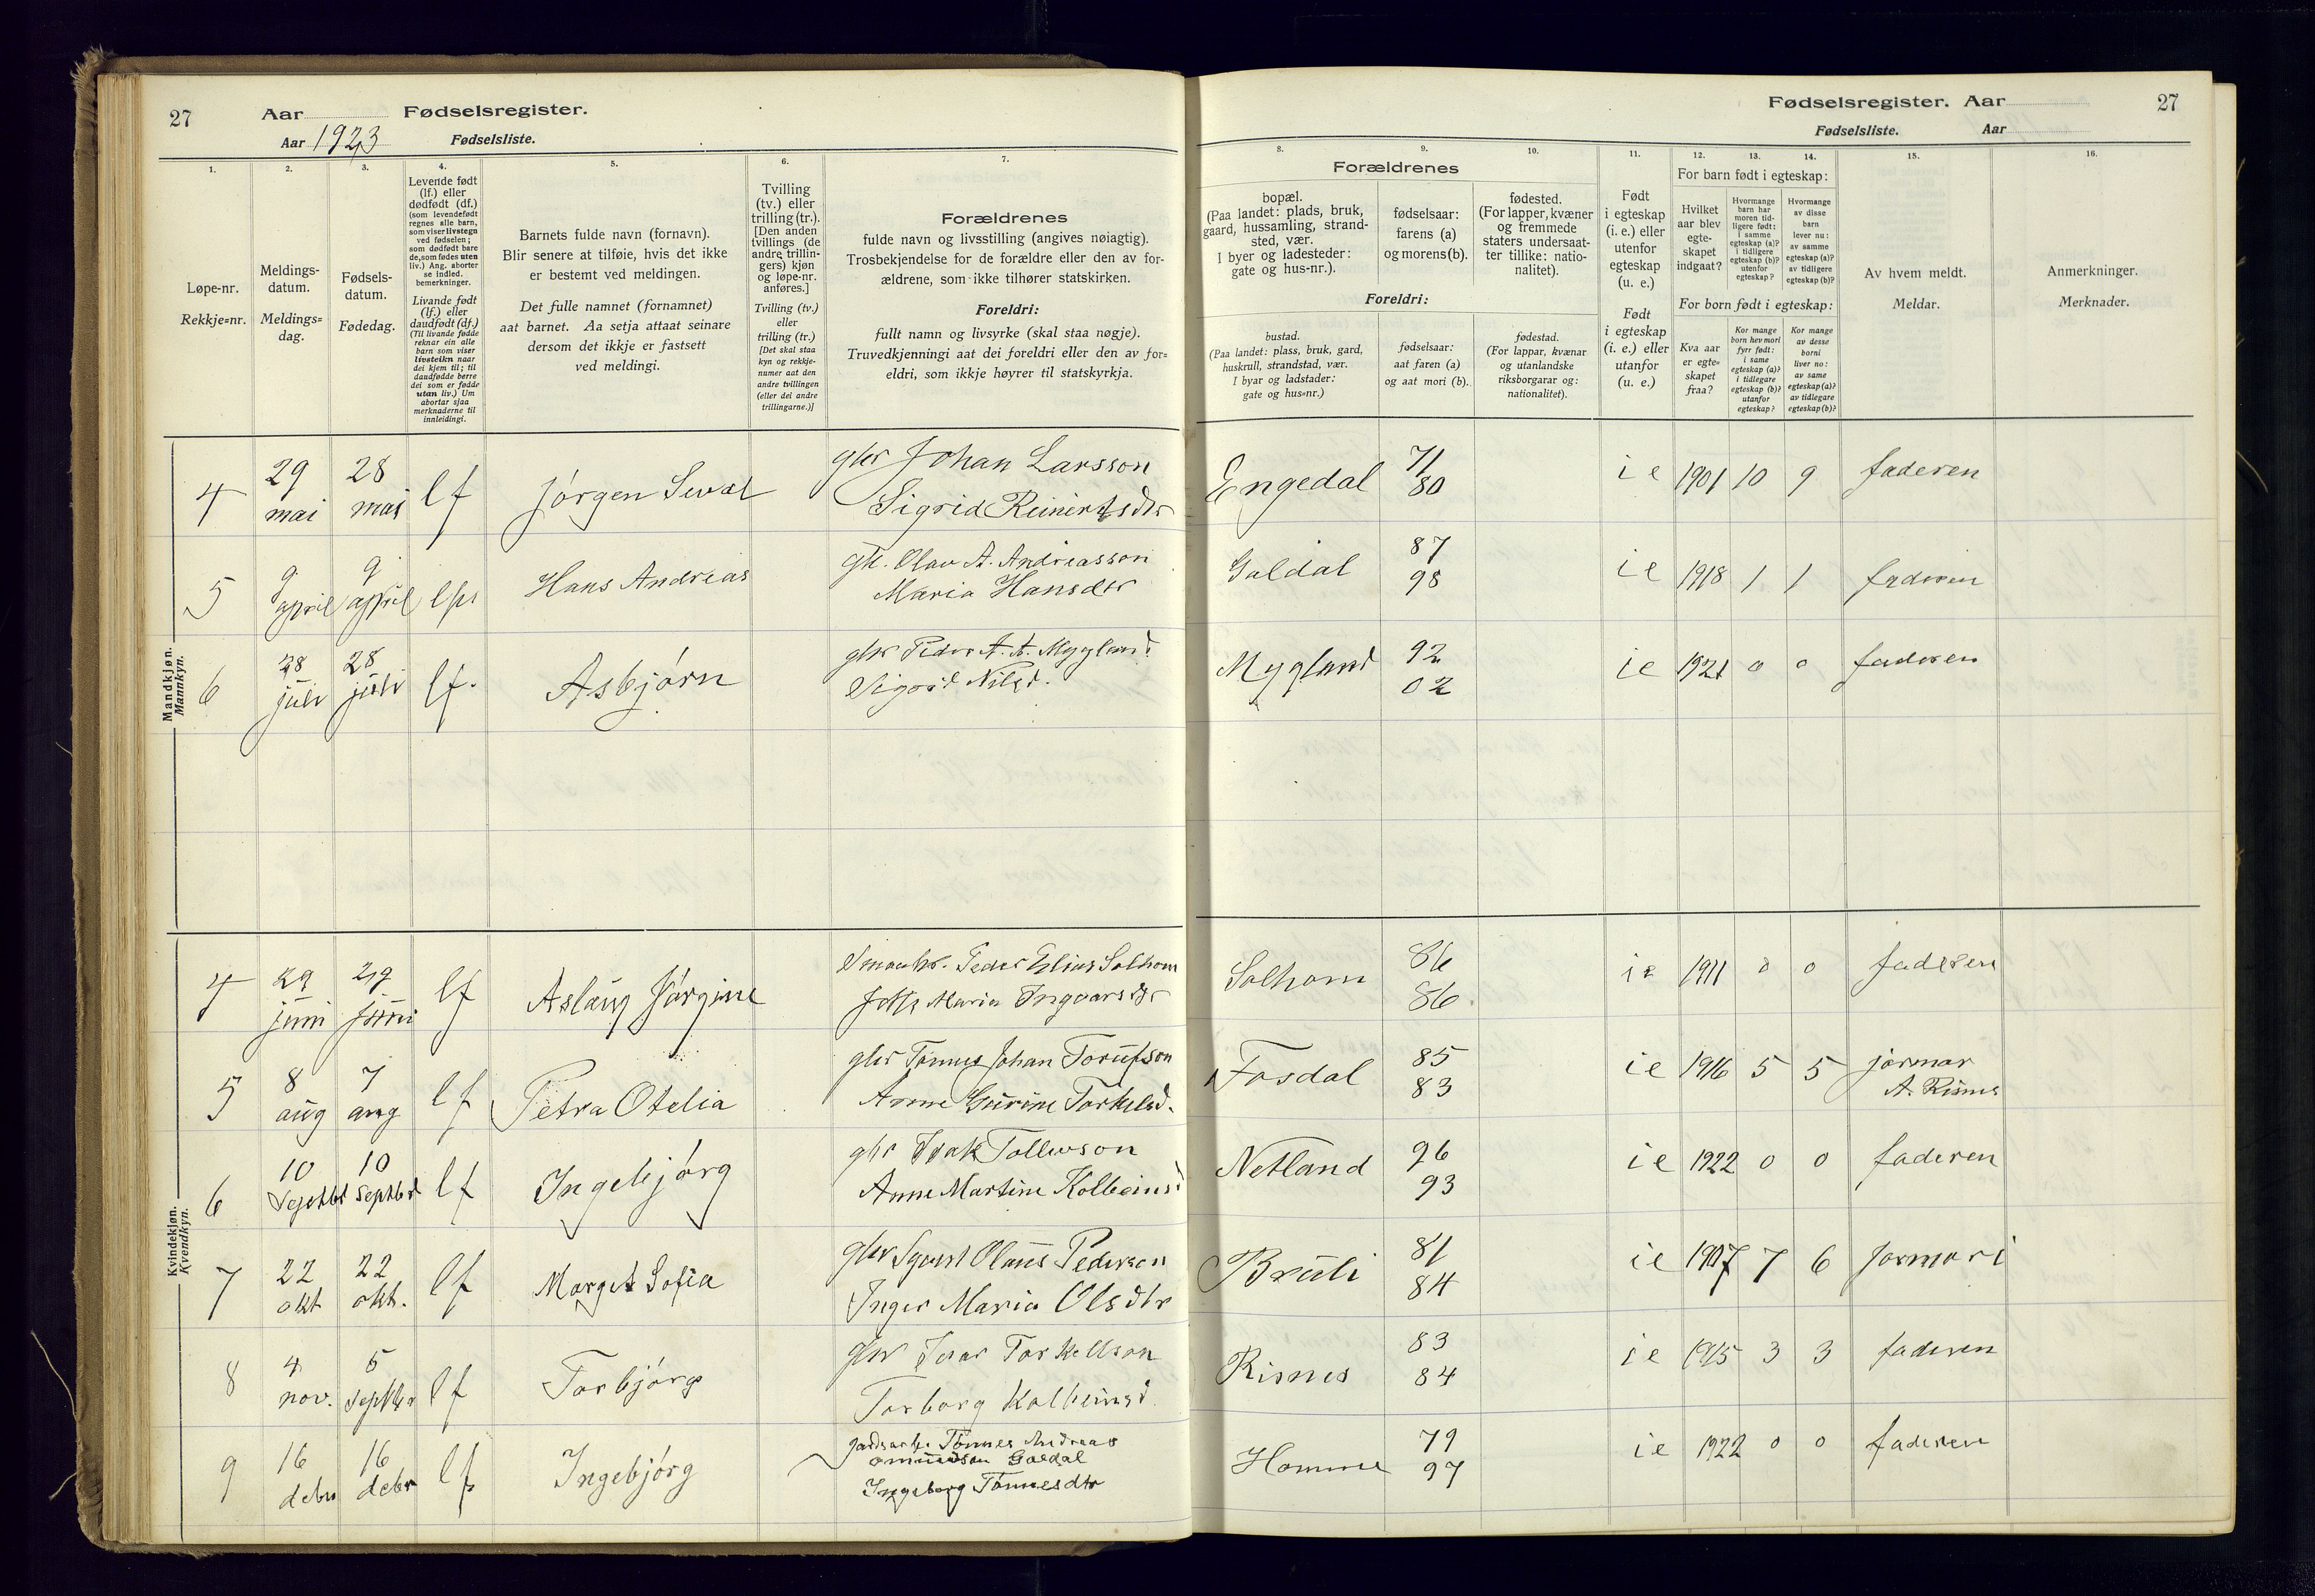 27
Aar
Fødselsregister.
Aar 1923
Fødselsliste.
1.
Løpe-nr.
Rekkje=nr.
2.
Meldings-
datum.
Meldings=
dag.
3.
Fødsels-
datum.
Fødedag.
4.
Levende født
(lf.) eller
dødfødt (df.)
(som levendefødt
regnes alle barn,
som viser livstegn
ved fødselen;
som dødfødt bare
de, som fødes uten
liv.) Ang. aborter
se indled.
bemerkninger.
Livande født
(lf.) eller
daudfødt (df.)
(Til livande fødde
reknar ein alle
barn som viser
livsteikn naar
dei kjem til; til
daudfødde berre
dei som er fødde
utan liv.) Um
abortar sjaa
merknaderne til
innleidingi.
5.
Barnets fulde navn (fornavn).
Blir senere at tilføie, hvis det ikke
er bestemt ved meldingen.
Det fulle namnet (fornamnet)
aat barnet. Aa setja attaat seinare
dersom det ikkje er fastsett
ved meldingi.
6.
Tvilling
(tv.) eller
trilling (tr.).
[Den anden
tvillings (de
andre trillin-
gers) kjøn
og løpe-nr.
anføres.]
Tvilling (tv.)
eller
trilling (tr.)
[Det skal staa
kyn og rekkje-
numer aat den
andre tvillingen
(eller dei andre
trillingarne.)]
7.
Forældrenes
fulde navn og livsstilling (angives nøiagtig).
Trosbekjendelse for de forældre eller den av for-
ældrene, som ikke tilhører statskirken.
Foreldri:
fullt namn og livsyrke (skal staa nøgje).
Truvedkjenningi aat dei foreldri eller den av for=
eldri, som ikkje høyrer til statskyrkja.
Mandkjøn.
Mannkyn.
4 29 mai 28 mai lf Jørgen Sival gbr Johan Larsson
Sigrid Reinertsdtr
5 9 april 9 april Hans Andreas gbr. Olav A. Andreasson
Maria Hansdtr
6 28 juli 28 juli lf. Asbjørn gbr Peder A. A. Mygland
Sigrid Nilsd.
Kvindekjøn.
Kvendkyn.
4 29 juni 29 juni lf Aslaug Jørgine Peder Elias Solhom
Maria Ingvarsdtr
5 8 aug 7 aug lf Petra Otelia gbr Tønnes Johan
Anne Gurine Torkelsd.
6 10 Septbr 10 Septbr lf Ingebjørg gbr Isak Tollevson
Anne Martine Kolbeinsd
7 22 okt 22 okt. lf Marget Sofia gbr Sigurd Olaus Pederson
Inger Maria Olsdtr
8 4 nov. 5 Septbr lf Torbjørg gbr Ivar Torkellson
Torborg Kolbeinsd
9 16 debr 16 debr lf Ingebjørg Tønnes Andreas
Omundson Goldal
Ingeborg Tønnesdtr
Fødselsregister. Aar
27
Fødselsliste.
Aar
8.
Forældrenes
bopæl.
(Paa landet: plads, bruk,
gaard, hussamling, strand-
sted, vær.
I byer og ladesteder:
gate og hus-nr.).
Foreldri:
bustad.
(Paa landet: plass, bruk, gard,
huskrull, strandstad, vær.
I byar og ladstader:
gate og hus=nr.)
9.
fødselsaar:
farens (a)
og morens (b).
fødselsaar:
aat faren (a)
og aat mori (b).
10.
fødested.
(For lapper, kvæner
og fremmede
staters undersaat-
ter tillike: natio-
nalitet).
fødestad.
(For lappar, kvænar
og utanlandske
riksborgarar og:
nationalitet).
11.
Født
i egteskap
(i. e.) eller
utenfor
egteskap
(u. e.)
Født
i egteskap
(i. e.) eller
utanfor
(u. e.)
12.
13.
14.
For barn født i egteskap:
Hvilket
aar blev
egte-
skapet
indgaat?
Hvormange
barn har
moren tid-
ligere født:
i samme
egteskap (a)?
i tidligere
egteskap (b)?
utenfor
egteskap?
Hvormange
av disse
barn
lever nu:
av samme
egteskap (a)?
av tidligere
egteskap (b)?
For born født i egteskap:
Kva aar
er egte=
skapet
fraa?
Kor mange
born hev mori
fyrr født:
i same
egteskap (a)?
i tidlegare
egteskap (b)?
utanfor
egteskap?
Kor mange
av desse
borni
liver no:
av same
egteskap (a)?
av tidlegare
egteskap (b)?
15.
Av hvem meldt.
Meldar.
16.
Anmerkninger.
Merknader.
Engedal 71 80 i e 1901 10 9 faderen
Galdal 87 98 i e 1918 1 1 faderen
Mygland 92 02 i e 1921 0 0 faderen
Solhom 86 86. i e 1911 0 0 faderen
Fosdal 85 83 i e 1916 5 5 jormor
A. Risnes
Netland 96 93 i e 1922 0 0 faderen
Bruli 81 84 i e 1907 7 6 jormori
Risnes 83 84 i e 1915 3 3 faderen
Homme 79 97 i e 1922 0 0 faderen